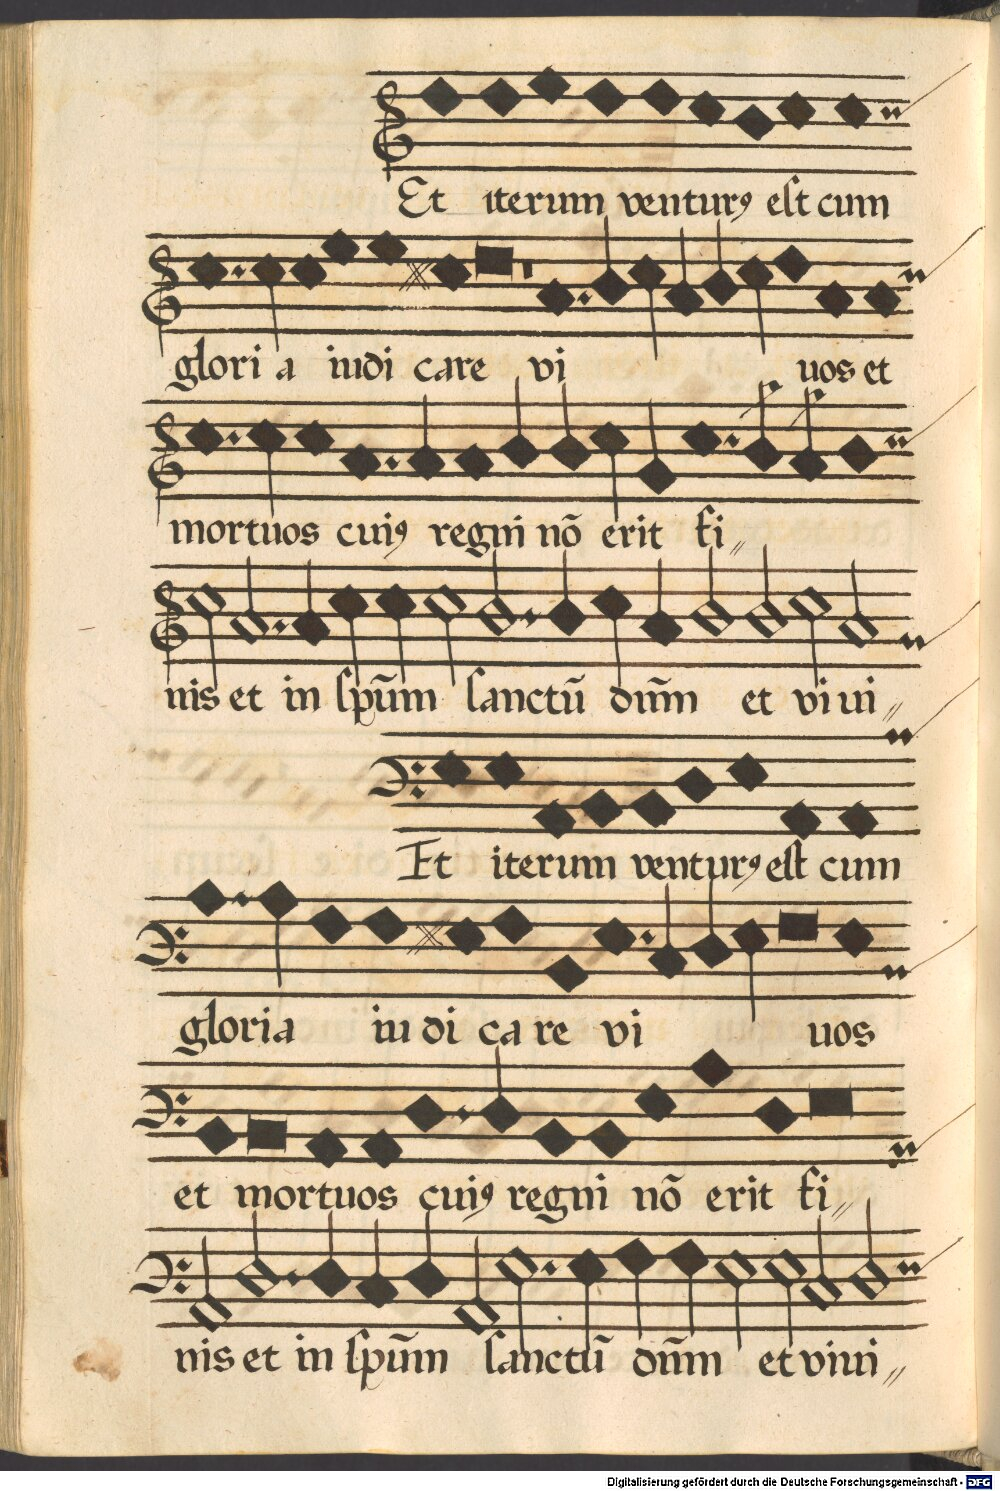 Et iterum venturꝰ est cum
glori a iudi care vi uos et
mortuos cuiꝰ regni nō erit fi〃
nis et in spūm sanctū dūm et vi ui〃
Et iterum venturꝰ est cum
gloria iu di ca re vi uos
et mortuos cuiꝰ regni nō erit fi〃
nis et in spūm sanctū dūm et vi ui〃
Digitalisierung gefördert durch die Deutsche Forschungsgemeinschaft - DFG